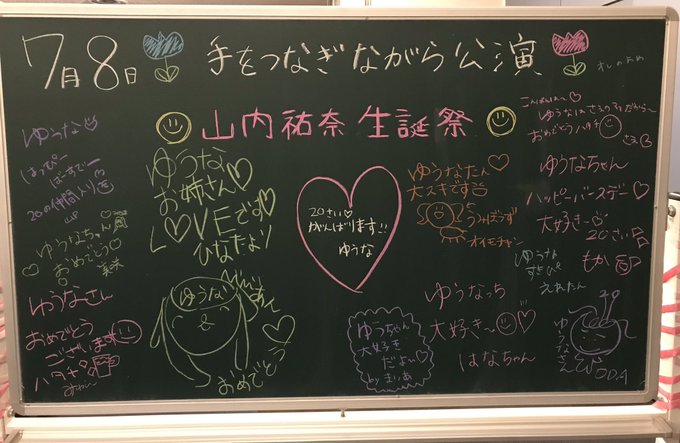 7月8日
手をつなぎながら公演
山内祐奈生誕祭
ゆうな♡
はっぴー
ばーすでー
20の仲間入り
ゆうな
お姉さん♡
L♡VEです♡
ひなたより
20さい♡
がんばります!!
ゆうな
ゆうなたん♡
大スキです
うつぼうず
オイモチャン
こんばんは〜♡
おめでとうハタチ
ゆうなちゃん
ハッピーバースデー♡
大好き〜
20さい
もか
ゆうなちゃん
おめでとう
ゆうなさん
おめでとう
ございます
ハタチ
ゆうな
おめでとう
ゆうちゃん
大好き
だよ〜♡
by まりあ
ゆうなっち
大好き〜♡
はなちゃん
ゆうな
えれたん
ODA